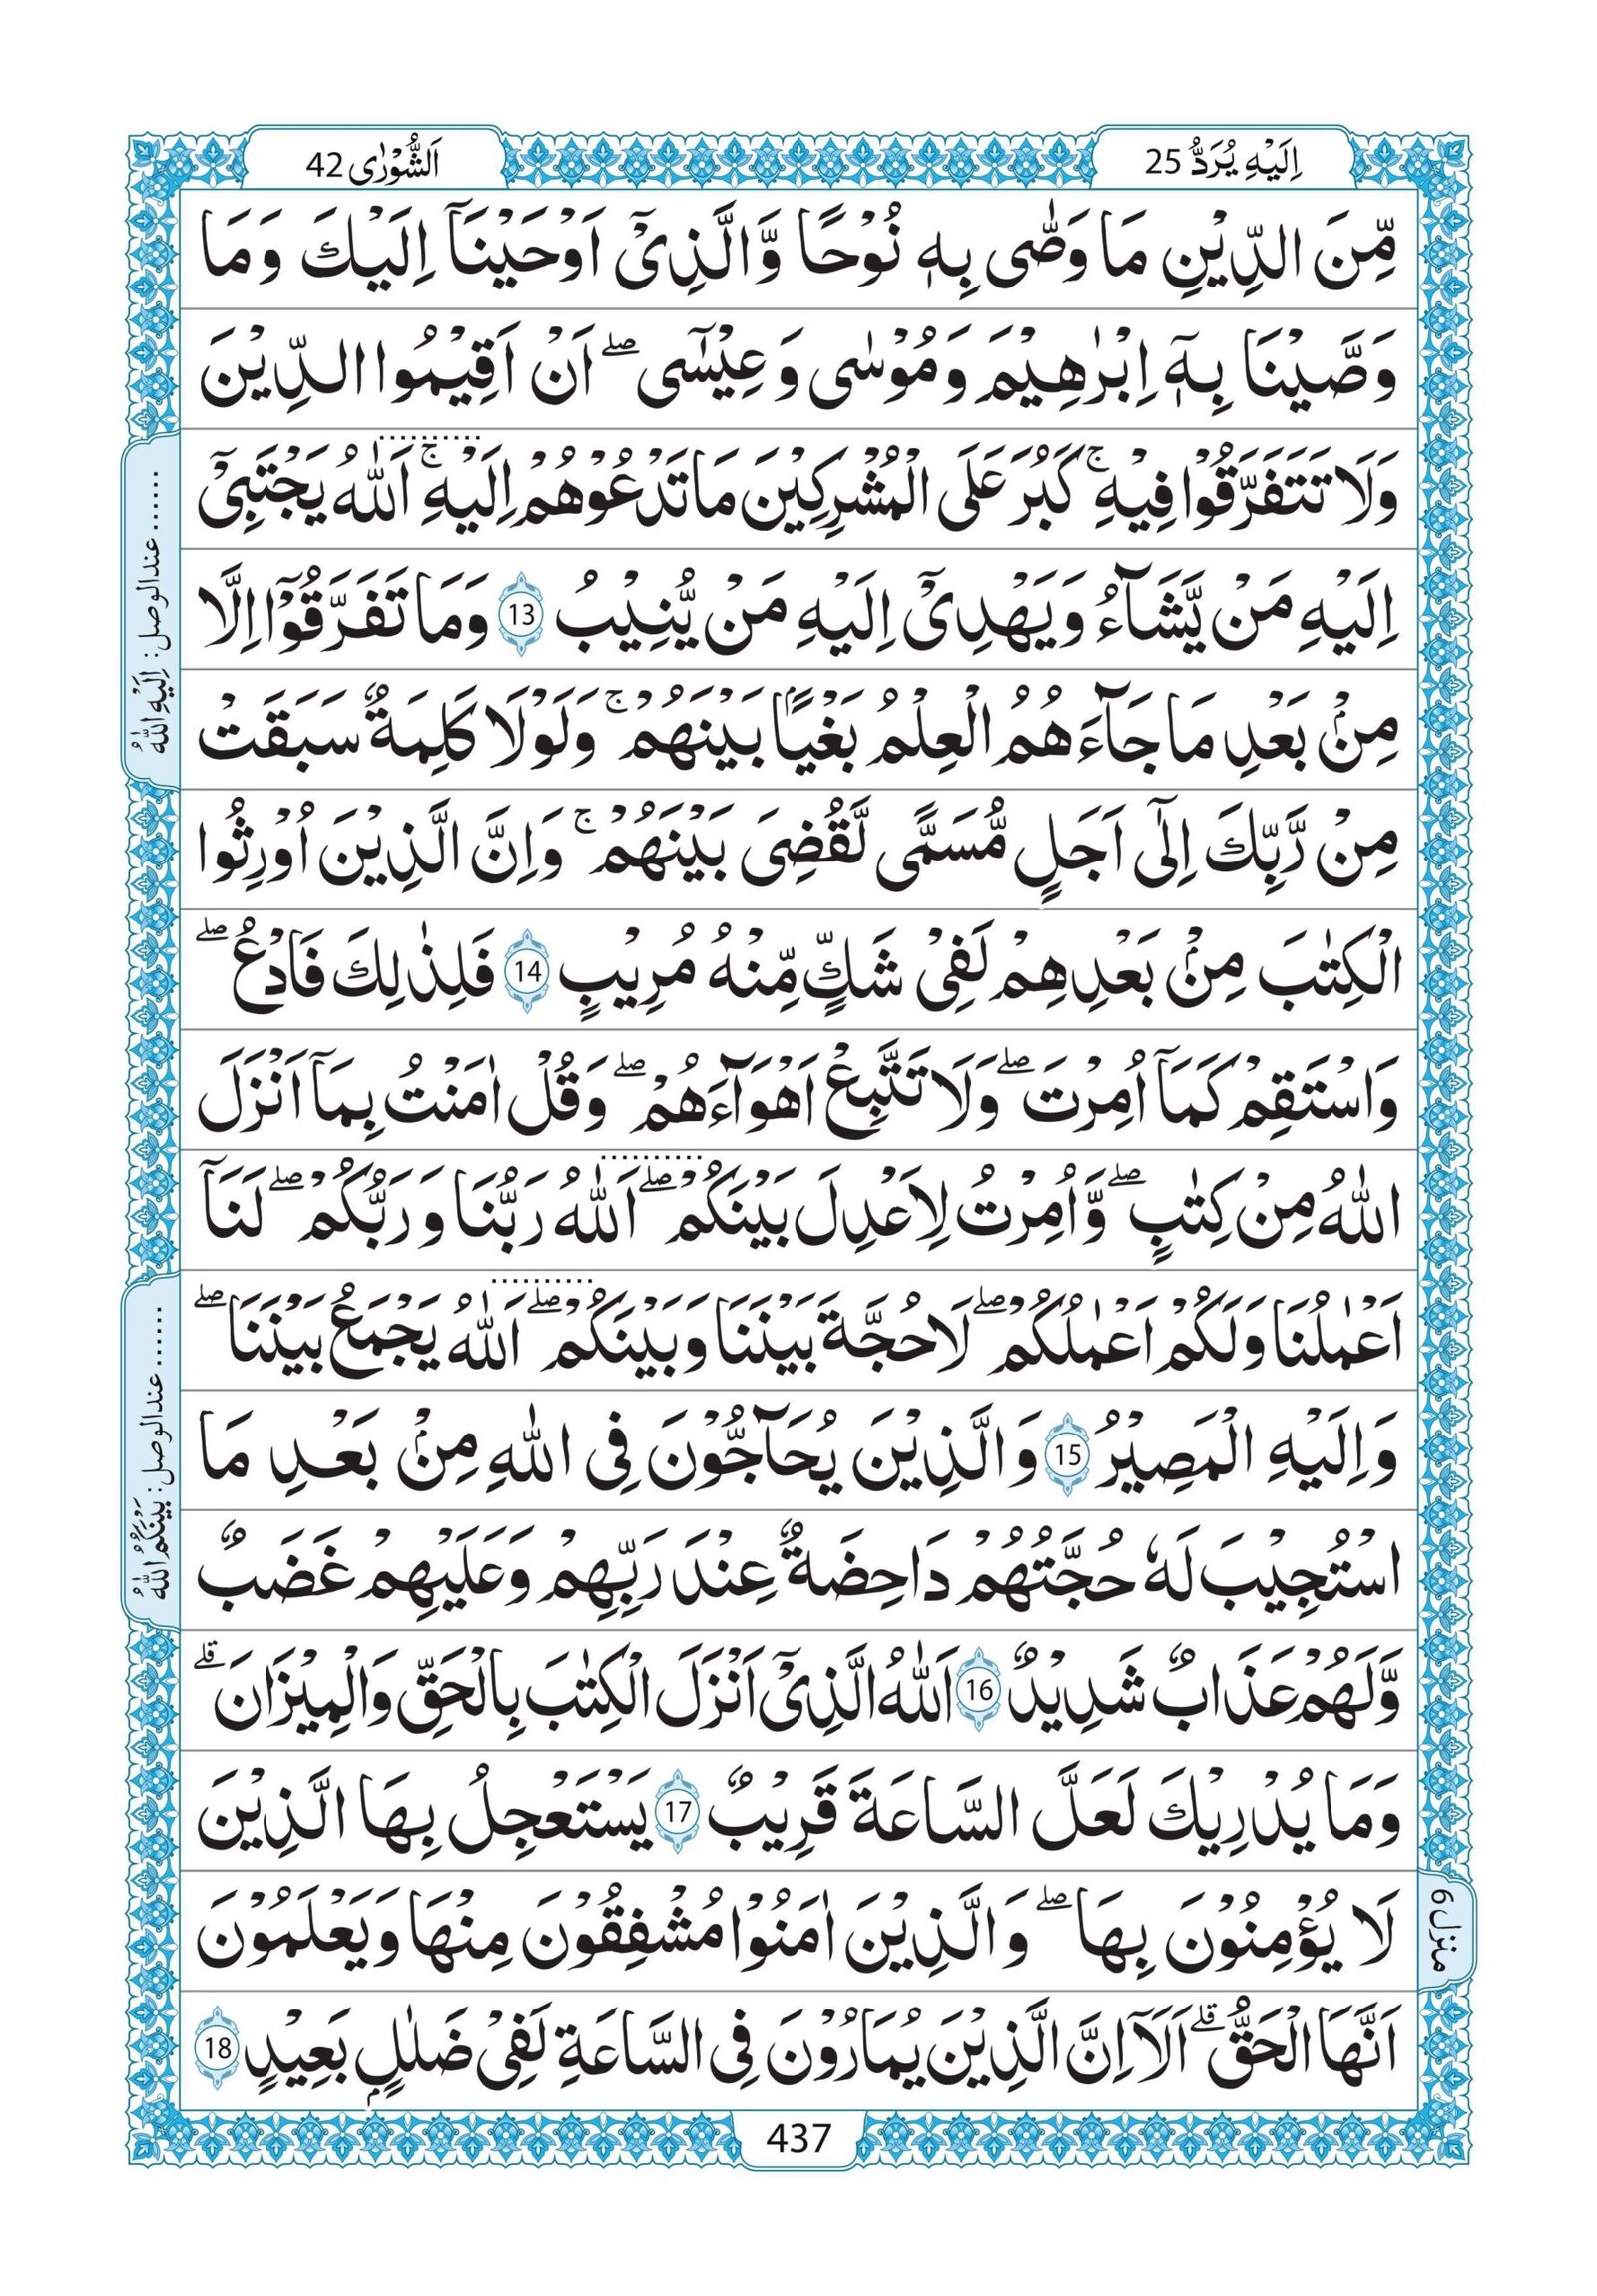 اِلَيْهِ يُرَدُّ 25
اَلشُّوْرٰى 42
مِّنَ الدِّيْنِ مَا وَصّٰى بِهٖ نُوْحًا وَّالَّذِىْٓ اَوْحَيْنَآ اِلَيْكَ وَمَا
وَصَّيْنَا بِهٖٓ اِبْرٰهِيْمَ وَمُوْسٰى وَعِيْسٰٓى ۖ اَنْ اَقِيْمُوا الدِّيْنَ
وَلَا تَتَفَرَّقُوْا فِيْهِ ۚ كَبُرَ عَلَى الْمُشْرِكِيْنَ مَا تَدْعُوْهُمْ اِلَيْهِ ۚ اَللّٰهُ يَجْتَبِىْٓ
اِلَيْهِ مَنْ يَّشَآءُ وَيَهْدِىْٓ اِلَيْهِ مَنْ يُّنِيْبُ 13 وَمَا تَفَرَّقُوْٓا اِلَّا
مِنْۢ بَعْدِ مَا جَآءَهُمُ الْعِلْمُ بَغْيًاۢ بَيْنَهُمْ ۚ وَلَوْلَا كَلِمَةٌ سَبَقَتْ
مِنْ رَّبِّكَ اِلٰٓى اَجَلٍ مُّسَمًّى لَّقُضِىَ بَيْنَهُمْ ۚ وَاِنَّ الَّذِيْنَ اُوْرِثُوا
الْكِتٰبَ مِنْۢ بَعْدِهِمْ لَفِىْ شَكٍّ مِّنْهُ مُرِيْبٍ 14 فَلِذٰلِكَ فَادْعُ ۖ
وَاسْتَقِمْ كَمَآ اُمِرْتَ ۖ وَلَا تَتَّبِعْ اَهْوَآءَهُمْ ۖ وَقُلْ اٰمَنْتُ بِمَآ اَنْزَلَ
اللّٰهُ مِنْ كِتٰبٍ ۖ وَّاُمِرْتُ لِاَعْدِلَ بَيْنَكُمْ ۖ اَللّٰهُ رَبُّنَا وَرَبُّكُمْ ۖ لَنَآ
اَعْمٰلُنَا وَلَكُمْ اَعْمٰلُكُمْ ۖ لَا حُجَّةَ بَيْنَنَا وَبَيْنَكُمْ ۖ اَللّٰهُ يَجْمَعُ بَيْنَنَا ۖ
وَاِلَيْهِ الْمَصِيْرُ 15 وَالَّذِيْنَ يُحَآجُّوْنَ فِى اللّٰهِ مِنْۢ بَعْدِ مَا
اسْتُجِيْبَ لَهٗ حُجَّتُهُمْ دَاحِضَةٌ عِنْدَ رَبِّهِمْ وَعَلَيْهِمْ غَضَبٌ
وَّلَهُمْ عَذَابٌ شَدِيْدٌ 16 اَللّٰهُ الَّذِىْٓ اَنْزَلَ الْكِتٰبَ بِالْحَقِّ وَالْمِيْزَانَ ۗ
وَمَا يُدْرِيْكَ لَعَلَّ السَّاعَةَ قَرِيْبٌ 17 يَسْتَعْجِلُ بِهَا الَّذِيْنَ
لَا يُؤْمِنُوْنَ بِهَا ۖ وَالَّذِيْنَ اٰمَنُوْا مُشْفِقُوْنَ مِنْهَا وَيَعْلَمُوْنَ
اَنَّهَا الْحَقُّ ۗ اَلَآ اِنَّ الَّذِيْنَ يُمَارُوْنَ فِى السَّاعَةِ لَفِىْ ضَلٰلٍۢ بَعِيْدٍ 18
...... عند الوصل: اِلَيْهِ اللّٰهُ
...... عند الوصل: بَيْنَكُمُ اللّٰهُ
منزل 6
437